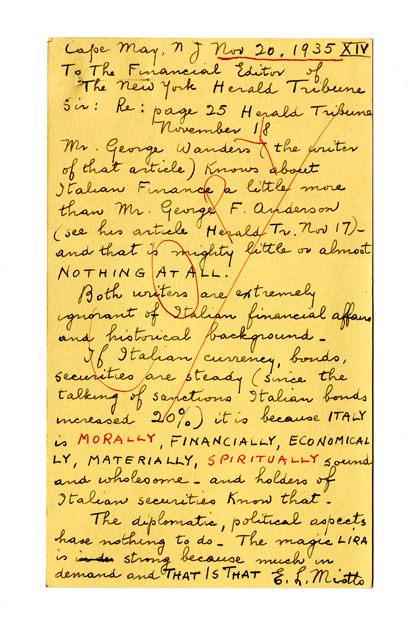 Cape May, N J Nov 20. 1935 XIV
To The Financial Editor of
The New York Herald Tribune
Sir: Re: page 25 Herald Tribune
November 18
Mr. George Wanders (the writer
of that article) Knows about
Italian Finance a little more
than Mr. George F. Anderson
(see his article Herald Tr. Nov 17)-
and that is mighty little or almost
NOTHING AT ALL.
Both writers are extremely
ignorant of Italian financial affairs
and historical background -
If Italian currency, bonds,
securities are steady (since the
talking of sanctions Italian bonds
increased 20%) it is because ITALY
is MORALLY, FINANCIALLY, ECONOMICAL
LY, MATERIALLY, SPIRITUALLY sound
and wholesome - and holders of
Italian securities Know that -
The diplomatic, political aspects
have nothing to do - The magic LIRA
is strong because much in
demand and THAT IS THAT E. L. Miotto